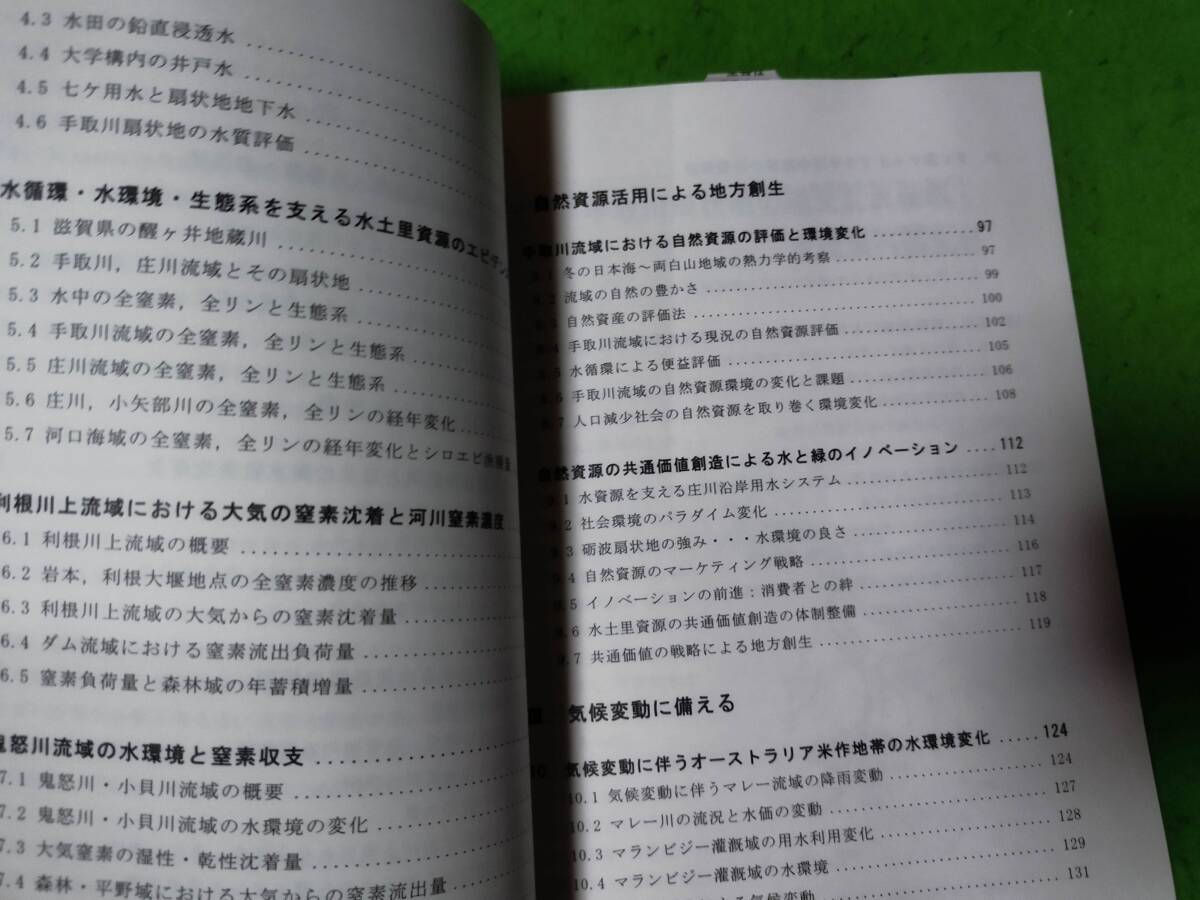 4.3 水田の鉛直浸透水
4.4 大学構内の井戸水
4.5 七ケ用水と扇状地地下水
4.6 手取川扇状地の水質評価
水循環・水環境・生態系を支える水土里資源のエピ
5.1 滋賀県の醒ヶ井地蔵川
5.2 手取川，庄川流域とその扇状地
5.3 水中の全窒素，全リンと生態系
5.4 手取川流域の全窒素，全リンと生態系
5.5 庄川流域の全窒素，全リンと生態系
5.6 庄川，小矢部川の全窒素，全リンの経年変化
5.7 河口海域の全窒素，全リンの経年変化とシロエビ漁獲量
利根川上流域における大気の窒素沈着と河川窒素濃度
6.1 利根川上流域の概要
6.2 岩本，利根大堰地点の全窒素濃度の推移
6.3 利根川上流域の大気からの窒素沈着量
6.4 ダム流域における窒素流出負荷量
6.5 窒素負荷量と森林域の年蓄積増量
鬼怒川流域の水環境と窒素収支
7.1 鬼怒川・小貝川流域の概要
7.2 鬼怒川・小貝川流域の水環境の変化
7.3 大気窒素の湿性・乾性沈着量
7.4 森林・平野域における大気からの窒素流出量
自然資源活用による地方創生
手取川流域における自然資源の評価と環境変化 97
冬の日本海～両白山地域の熱力学的考察 97
8.2 流域の自然の豊かさ 99
8.3 自然資産の評価法 100
8.4 手取川流域における現況の自然資源評価 102
8.5 水循環による便益評価 105
8.6 手取川流域の自然資源環境の変化と課題 106
8.7 人口減少社会の自然資源を取り巻く環境変化 108
自然資源の共通価値創造による水と緑のイノベーション 112
9.1 水資源を支える庄川沿岸用水システム 112
9.2 社会環境のパラダイム変化 113
9.3 砺波扇状地の強み・・・水環境の良さ 114
9.4 自然資源のマーケティング戦略 116
9.5 イノベーションの前進：消費者との絆 117
9.6 水土里資源の共通価値創造の体制整備 118
9.7 共通価値の戦略による地方創生 119
気候変動に備える
10 気候変動に伴うオーストラリア米作地帯の水環境変化 124
10.1 気候変動に伴うマレー流域の降雨変動 124
10.2 マレー川の流況と水価の変動 127
10.3 マランビジー灌漑域の用水利用変化 128
10.4 マランビジー灌漑域の水環境 129
気候変動 131